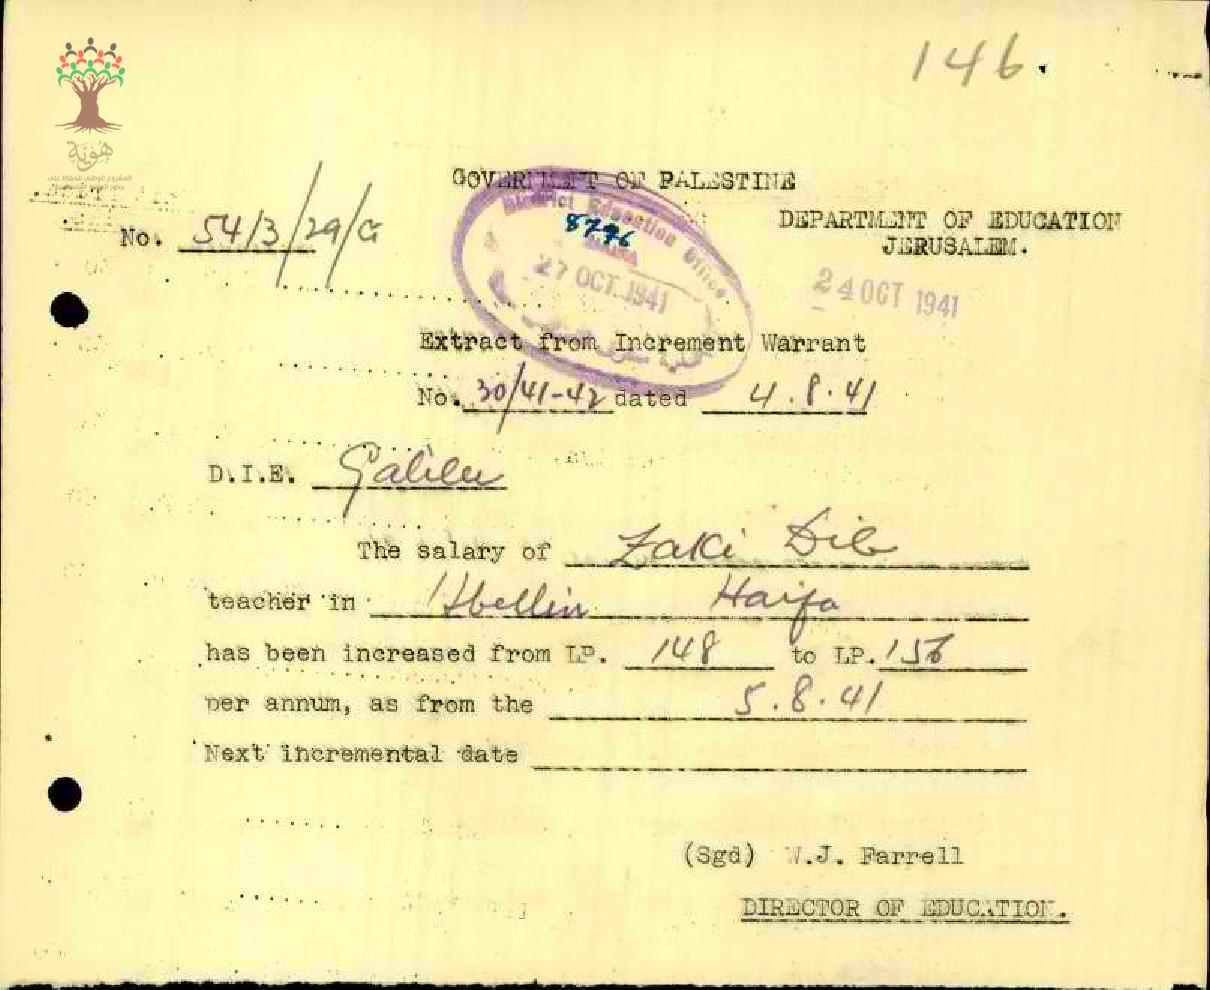 146.
هوية
GOVERNMENT OF PALESTINE
No. 54/3/29/G
DEPARTMENT OF EDUCATION
JERUSALEM.
District Education Office
8796
27 OCT. 1941
24 OCT 1941
Extract from Increment Warrant
No. 30/41-42 dated 4.8.41
D.I.E. Galilee
The salary of Zaki Dib
teacher in I'bellin Haifa
has been increased from LP. 148 to LP. 156
per annum, as from the 5.8.41
Next incremental date
(Sgd) W.J. Farrell
DIRECTOR OF EDUCATION.